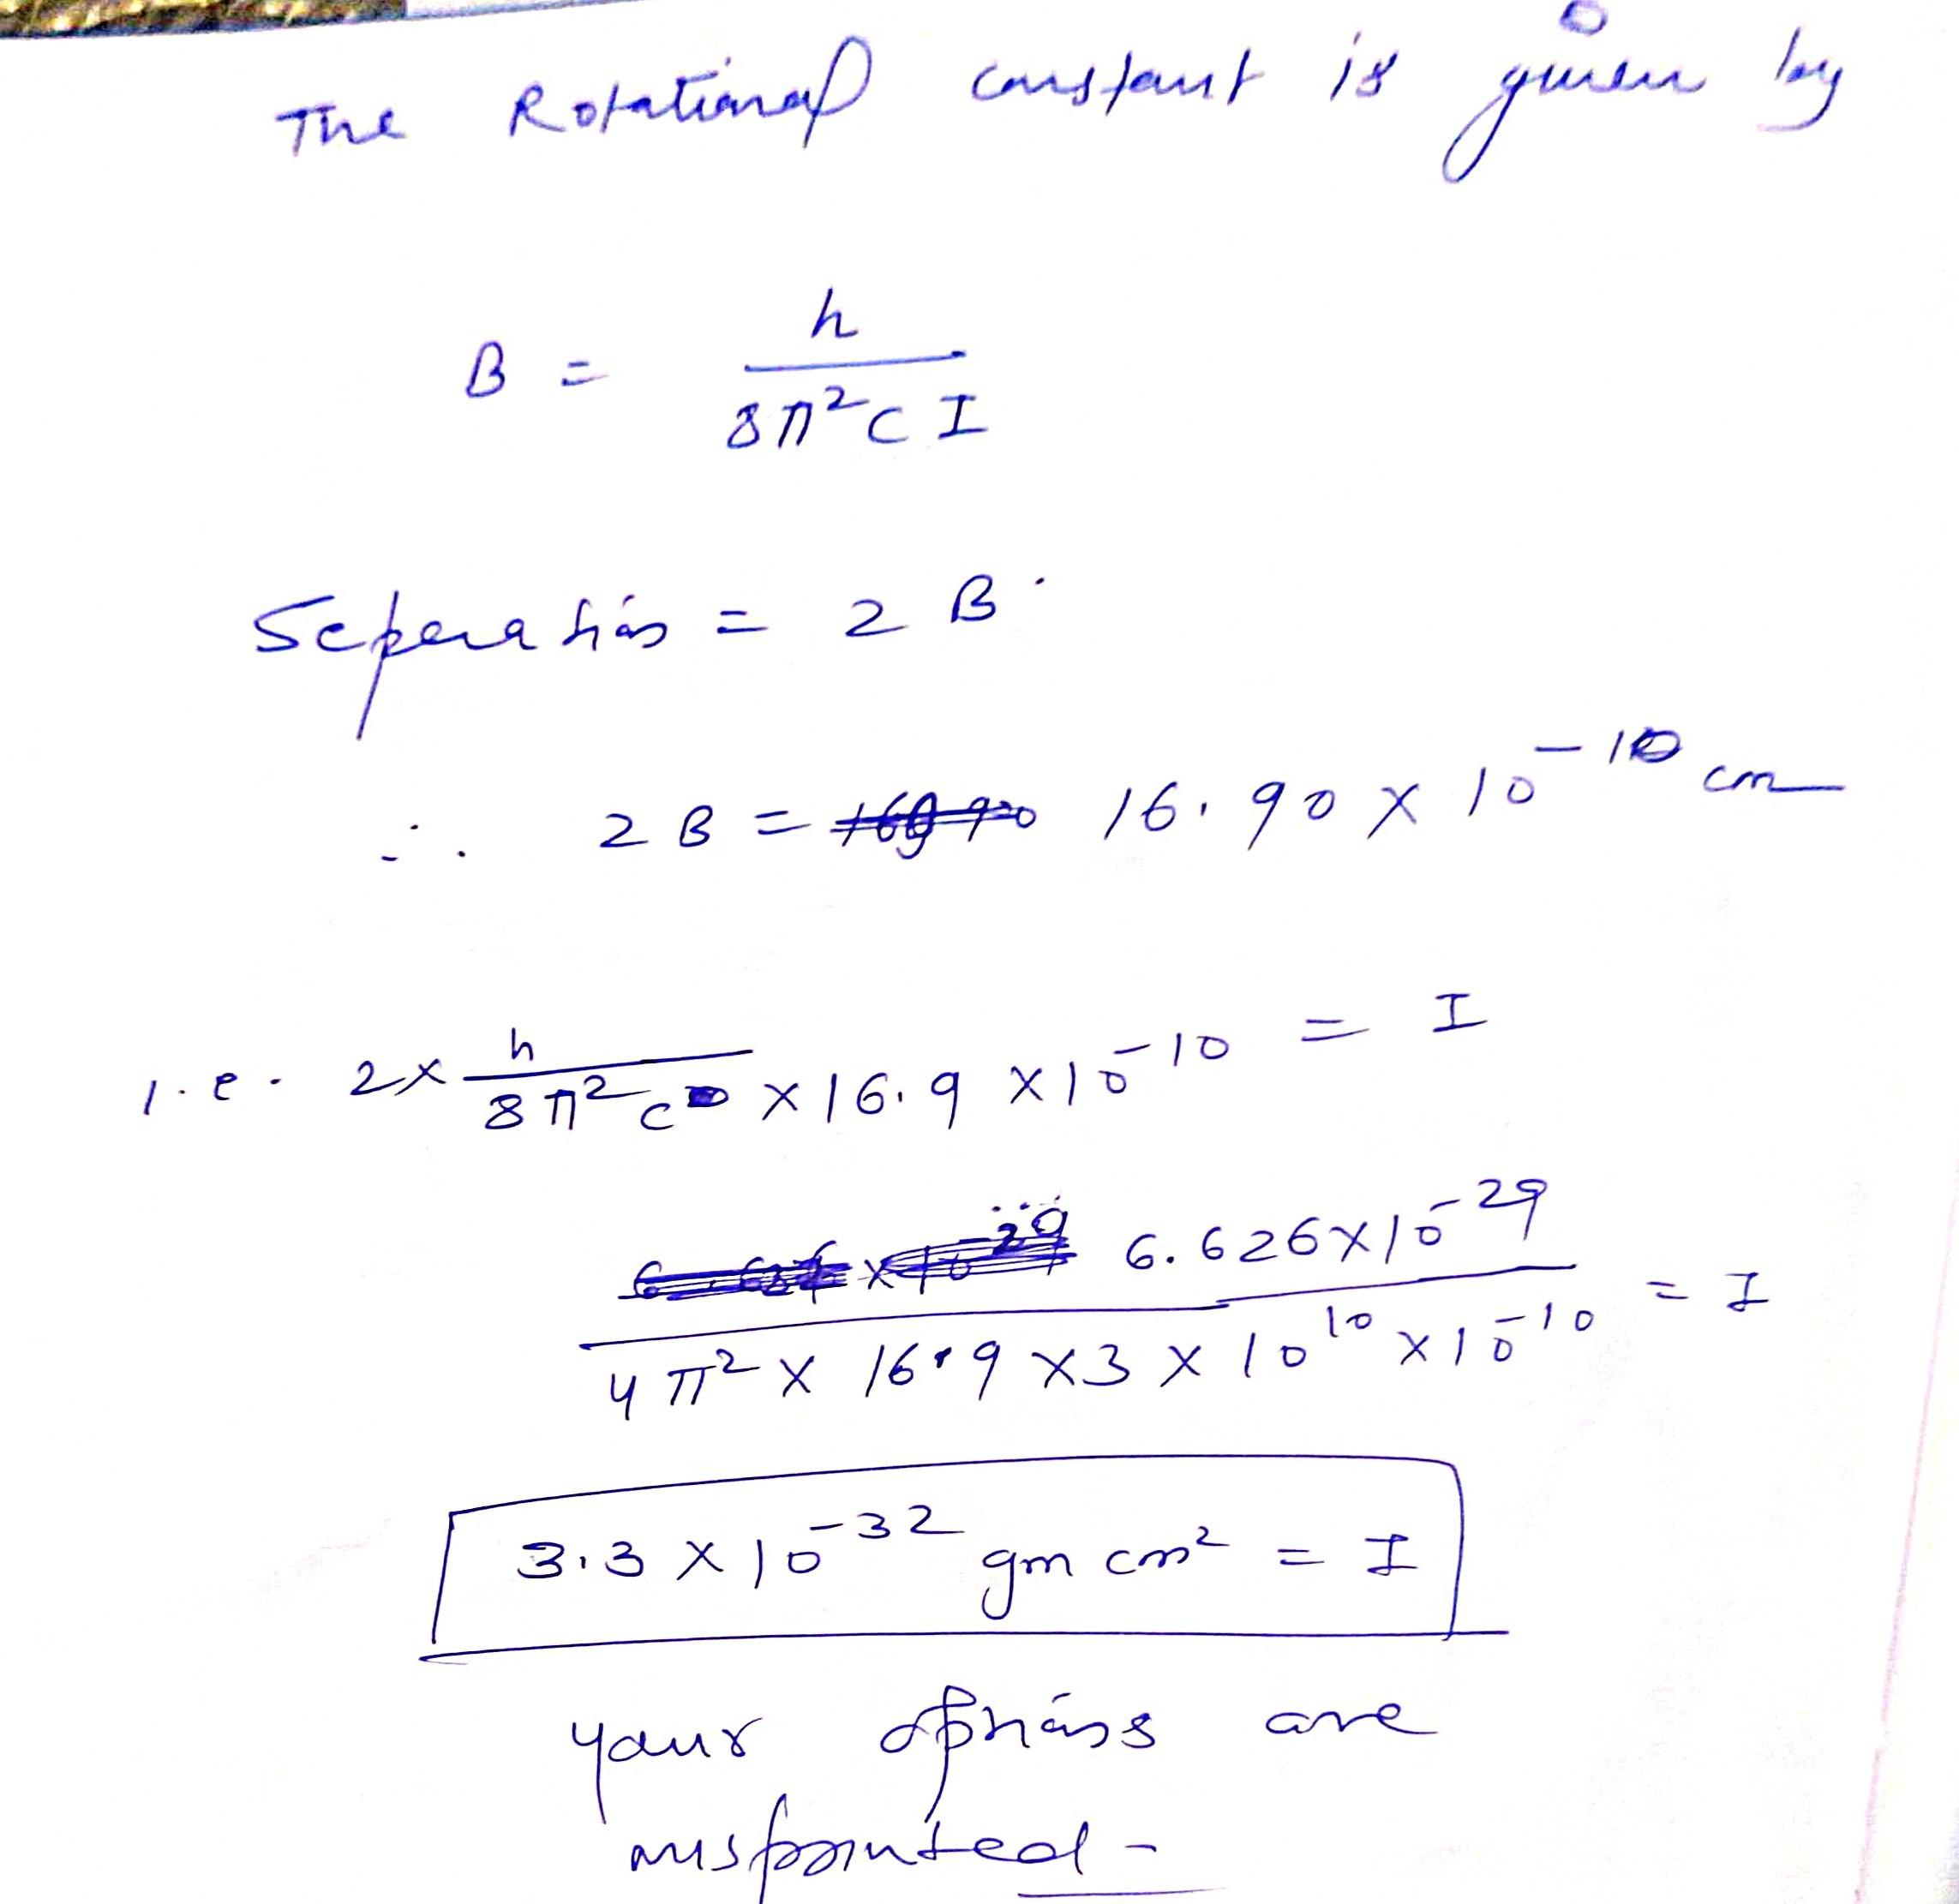 The Rotational constant is given by
B = h / 8π²CI
Seperation = 2B
∴ 2B = 16.90 × 10⁻¹⁰ cm
i.e. 2× h / 8π²c × 16.9 × 10⁻¹⁰ = I
6.626×10⁻²⁹ / 4π² × 16.9 × 3 × 10¹⁰ × 10⁻¹⁰ = I
3.3 × 10⁻³² gm cm² = I
your options are
misprinted -